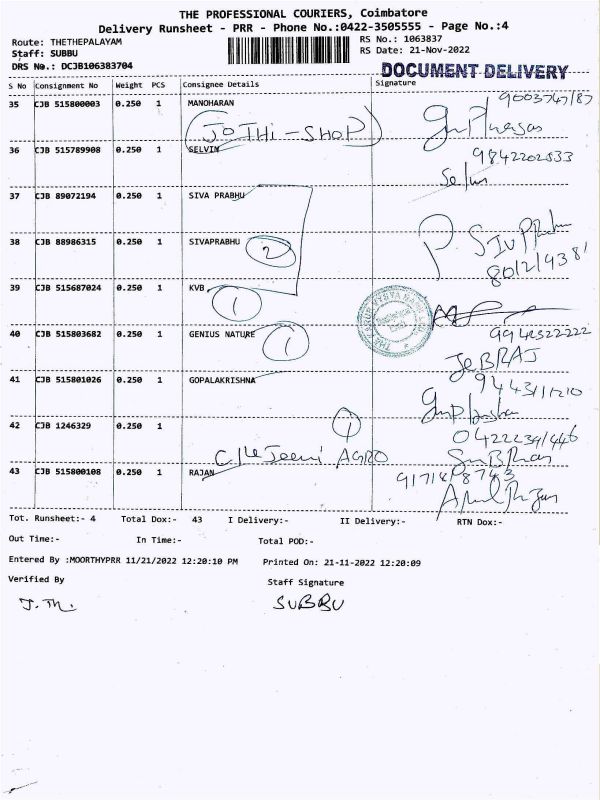 THE PROFESSIONAL COURIERS, Coimbatore
Delivery Runsheet - PRR - Phone No.:0422-3505555 - Page No.:4
Route: THETHEPALAYAM
RS No.: 1063837
Staff: SUBBU
RS Date: 21-Nov-2022
DRS No.: DCJB106383704
DOCUMENT DELIVERY
S No Consignment No Weight PCS Consignee Details Signature
35 CJB 515800003 0.250 1 MANOHARAN 9003747187
JOTHI-SHOP
36 CJB 515789908 0.250 1 SELVIN 9842202533
37 CJB 89072194 0.250 1 SIVA PRABHU
38 CJB 88986315 0.250 1 SIVAPRABHU 2
39 CJB 515687024 0.250 1 KVB 1
40 CJB 515803682 0.250 1 GENIUS NATURE 1 9942322222
JEBRAJ
41 CJB 515801026 0.250 1 GOPALAKRISHNA
42 CJB 1246329 0.250 1 1
AGRO
43 CJB 515800108 0.250 1 RAJAN
Tot. Runsheet:- 4 Total Dox:- 43 I Delivery:- II Delivery:- RTN Dox:-
Out Time:- In Time:- Total POD:-
Entered By :MOORTHYPRR 11/21/2022 12:20:10 PM Printed On: 21-11-2022 12:20:09
Verified By Staff Signature
SUBBU